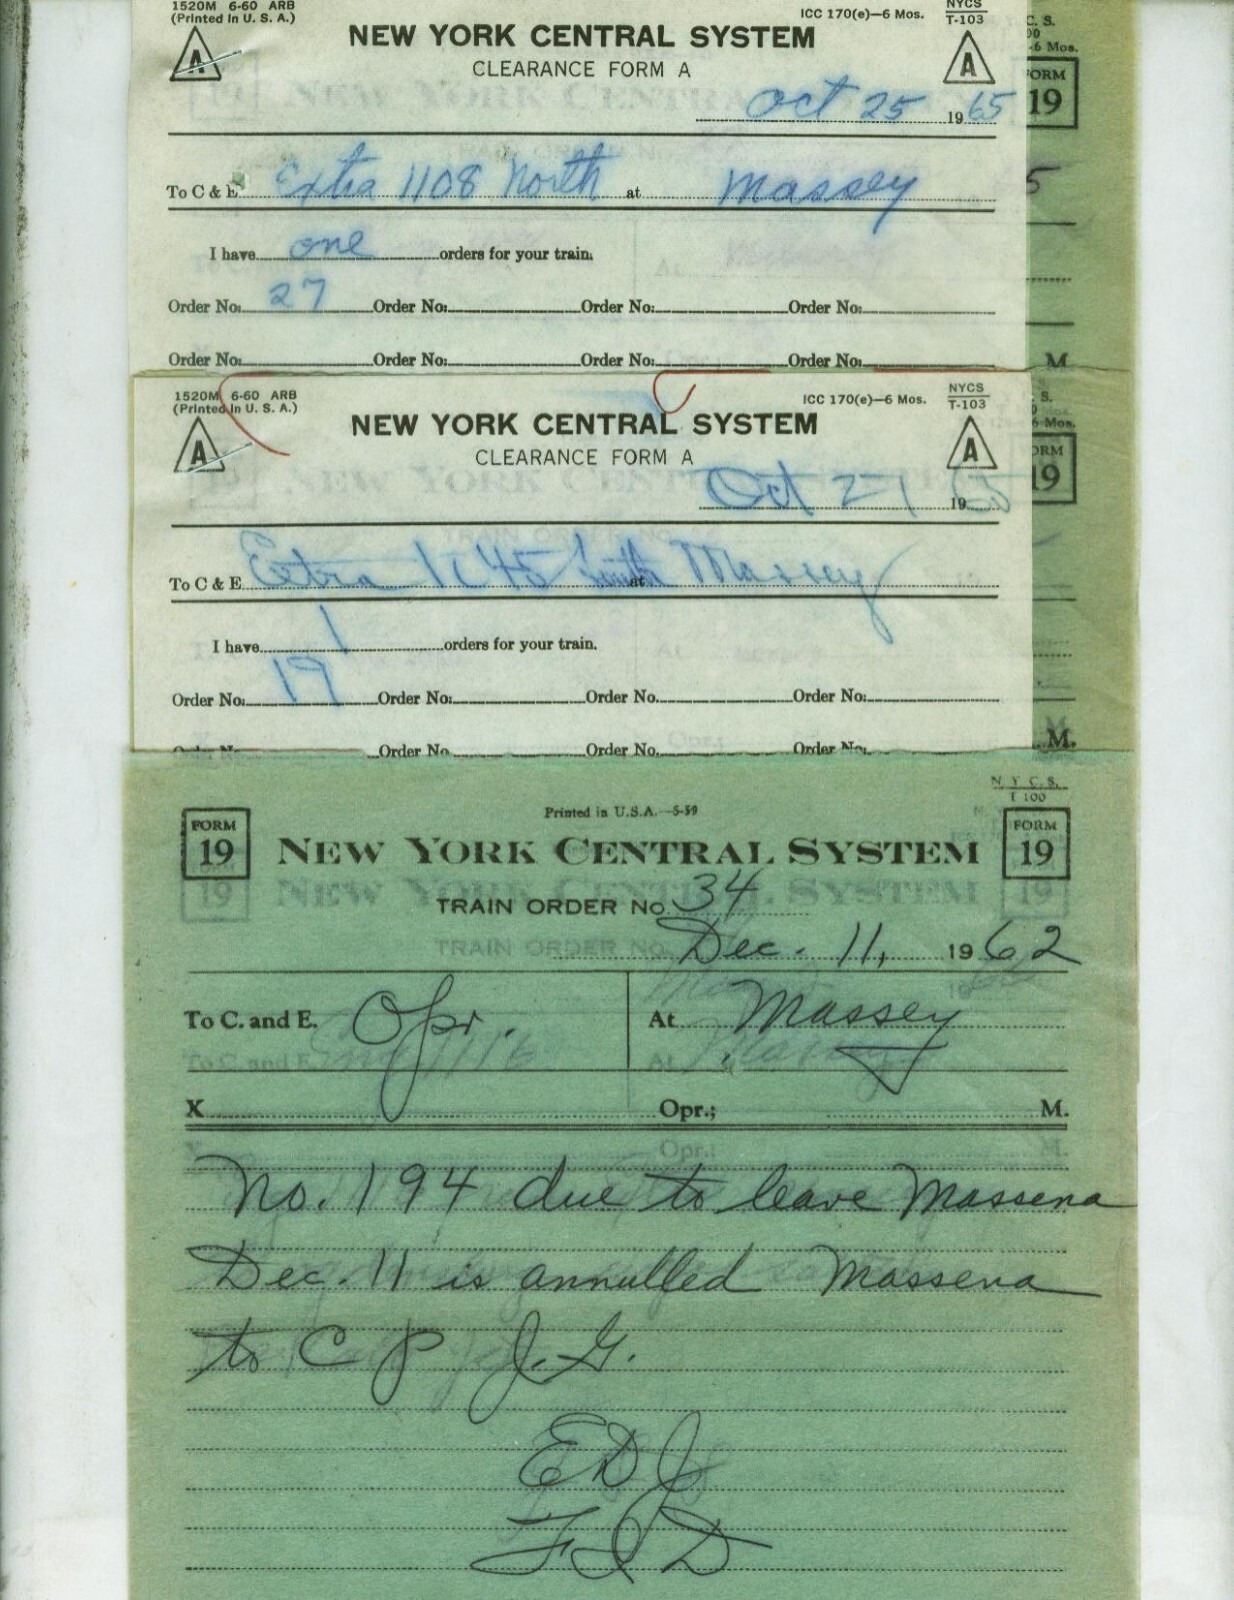 1520M 6-60 ARB
(Printed in U. S. A.)
ICC 170(e)—6 Mos.
NYCS
T-103
C. S.
00
-6 Mos.
A
NEW YORK CENTRAL SYSTEM
A
CLEARANCE FORM A
FORM
19
Oct 25 1965
To C & E Extra 1108 North at Massey
5
I have one orders for your train.
Order No. 27 Order No. Order No. Order No.
Order No. Order No. Order No. Order No.
M.
1520M 6-60 ARB
(Printed in U. S. A.)
ICC 170(e)—6 Mos.
NYCS
T-103
S.
0
6 Mos.
A
NEW YORK CENTRAL SYSTEM
A
CLEARANCE FORM A
ORM
19
Oct 21 1965
To C & E Extra 1145 South at Massey
I have 1 orders for your train.
Order No. 19 Order No. Order No. Order No.
Order No. Order No. Order No. Order No.
M.
N. Y. C. S.
T 100
Printed in U.S.A.—5-59
FORM
19
NEW YORK CENTRAL SYSTEM
FORM
19
TRAIN ORDER No. 34
Dec. 11, 1962
To C. and E. Opr. At Massey
X Opr.; M.
No. 194 due to leave Massena
Dec. 11 is annulled Massena
to C P J. G.
EDJ
FJD